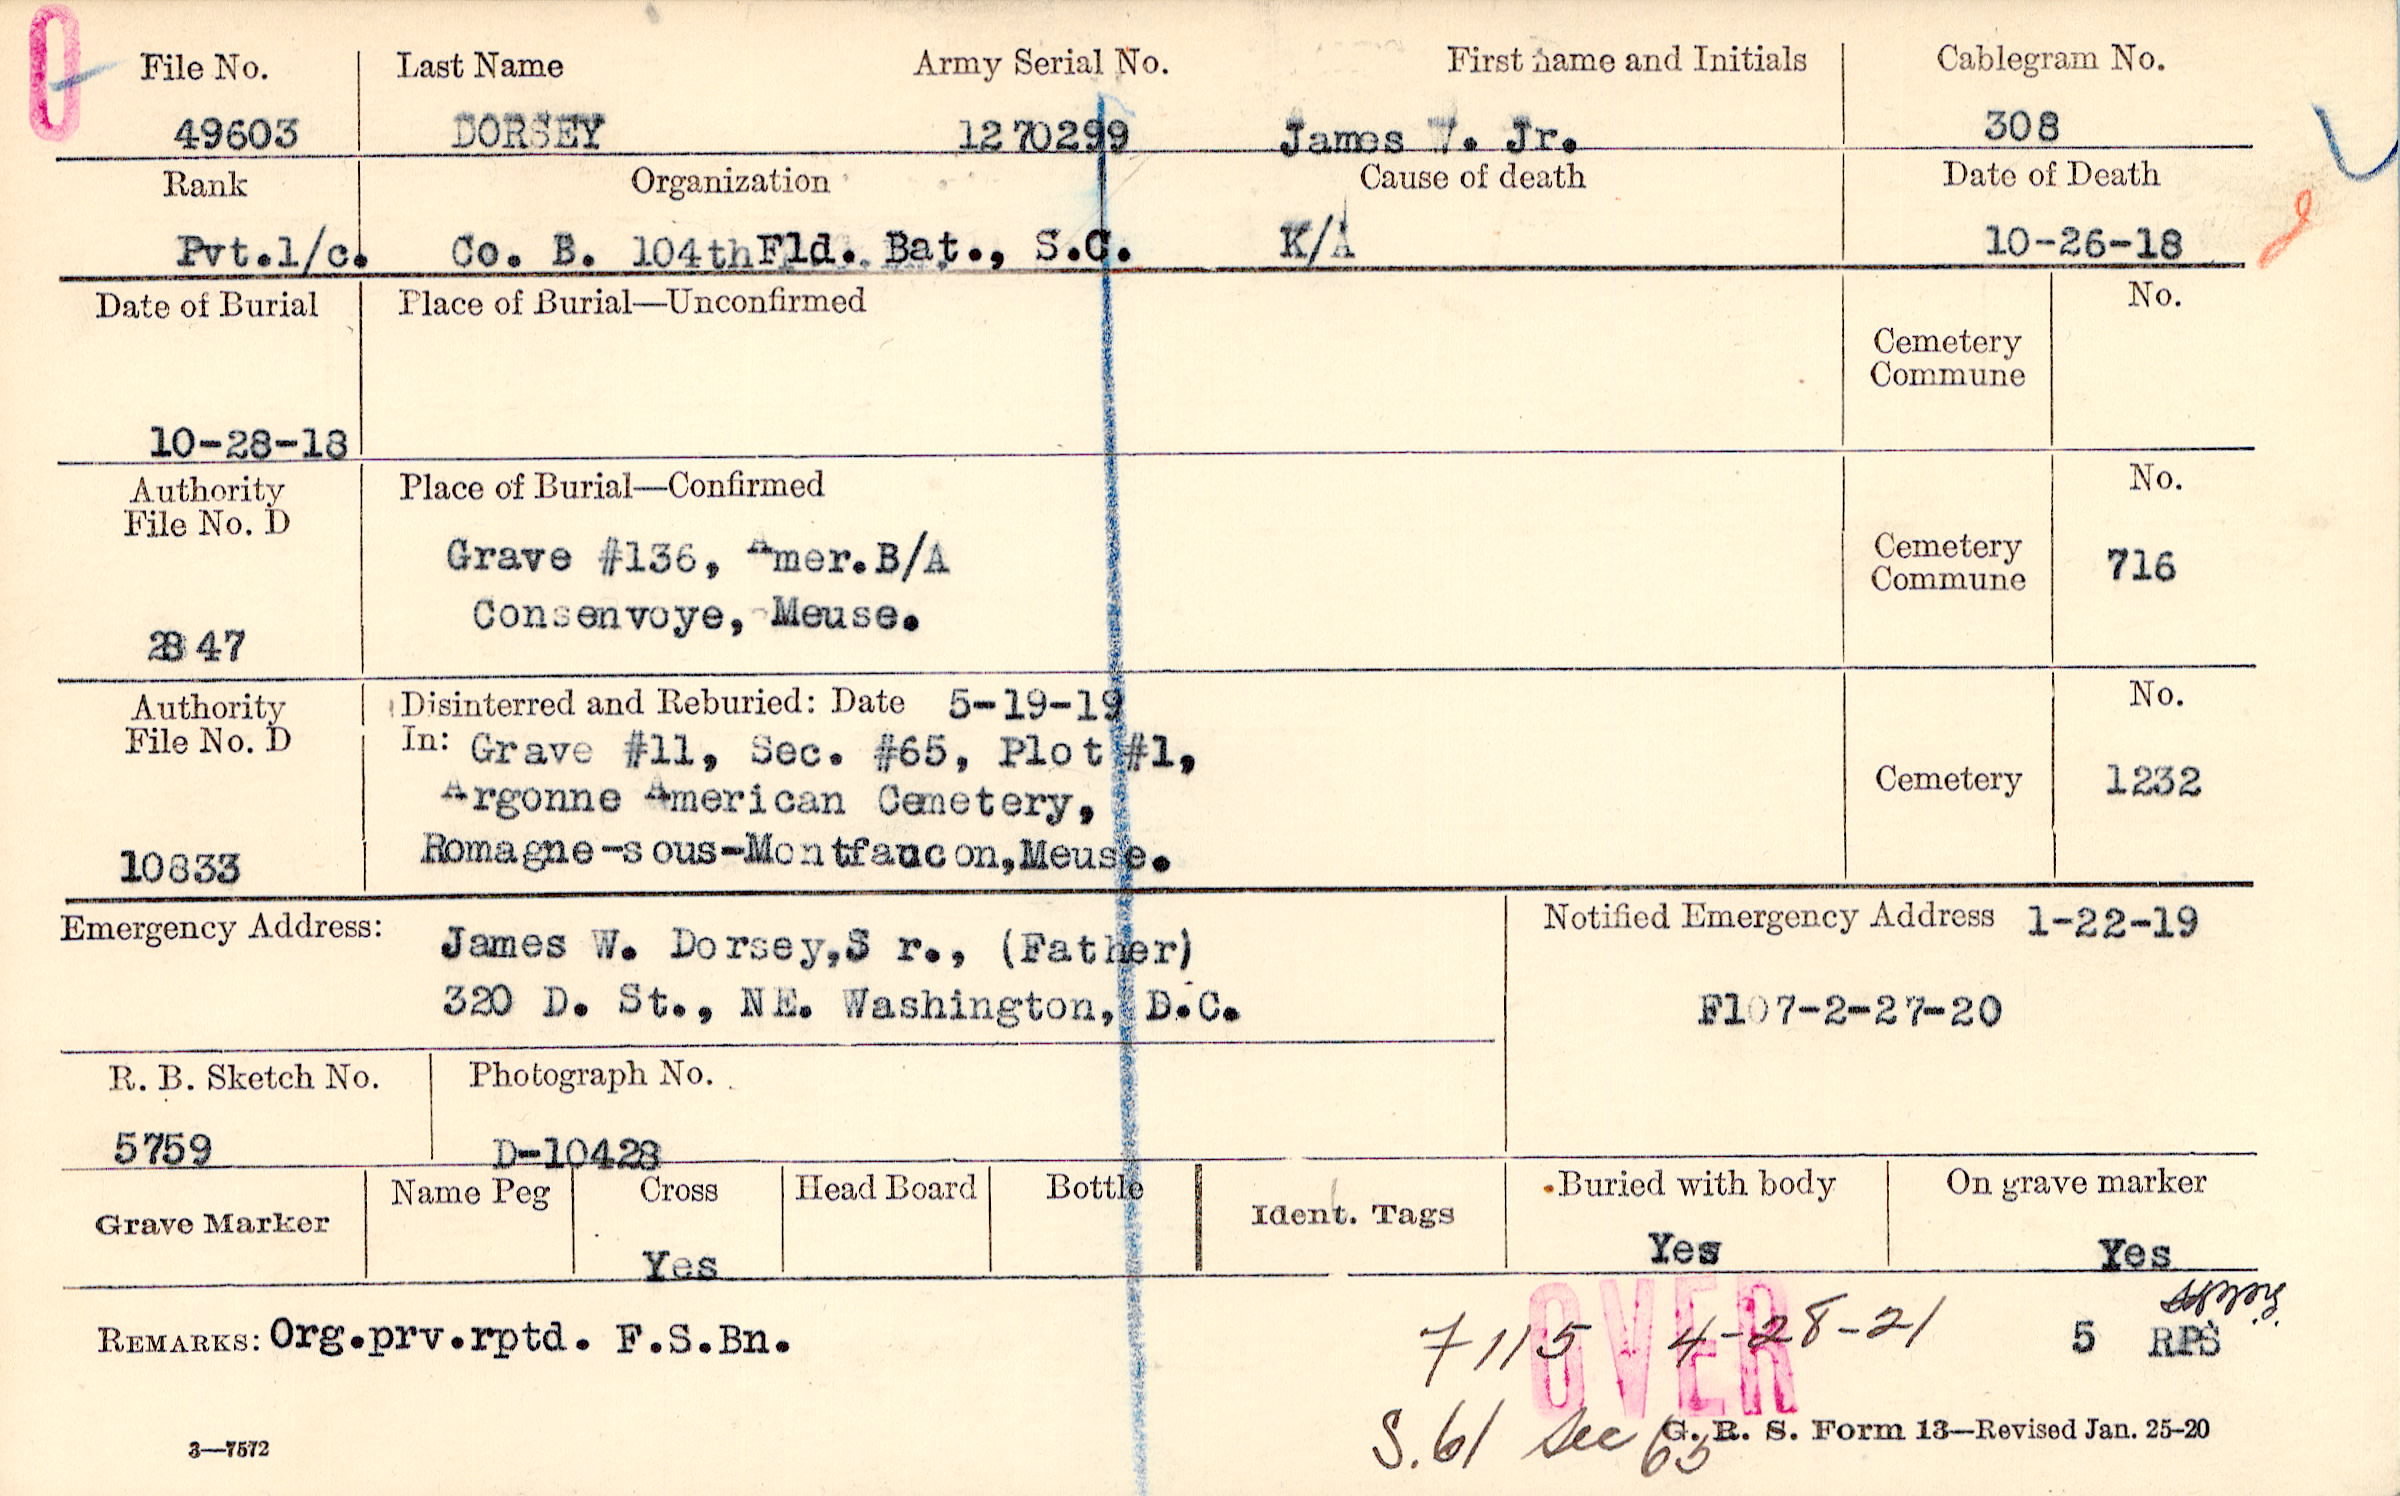 File No. Last Name Army Serial No. First name and Initials Cablegram No.
49603 DORSEY 1270299 James W. Jr. 308
Rank Organization Cause of death Date of Death
Pvt.1/c. Co. B. 104th Fld. Bat., S.C. K/A 10-26-18
Date of Burial Place of Burial—Unconfirmed No.
Cemetery
Commune
10-28-18
Authority Place of Burial—Confirmed No.
File No. D
Grave #136, Amer.B/A Cemetery
Commune 716
Consenvoye, Meuse.
2847
Authority Disinterred and Reburied: Date 5-19-19 No.
File No. D In: Grave #11, Sec. #65, Plot #1,
Argonne American Cemetery, Cemetery 1232
10833 Romagne-sous-Montfaucon,Meuse.
Emergency Address: Notified Emergency Address 1-22-19
James W. Dorsey,S r., (Father)
320 D. St., NE. Washington, D.C. F107-2-27-20
R. B. Sketch No. Photograph No.
5759 D-10428
Grave Marker Name Peg Cross Head Board Bottle Ident. Tags Buried with body On grave marker
Yes Yes Yes
REMARKS: Org.prv.rptd. F.S.Bn. 7115 4-28-21 5 RPS
OVER
S.61 Sec 65
3—7572 G. R. S. Form 13—Revised Jan. 25-20